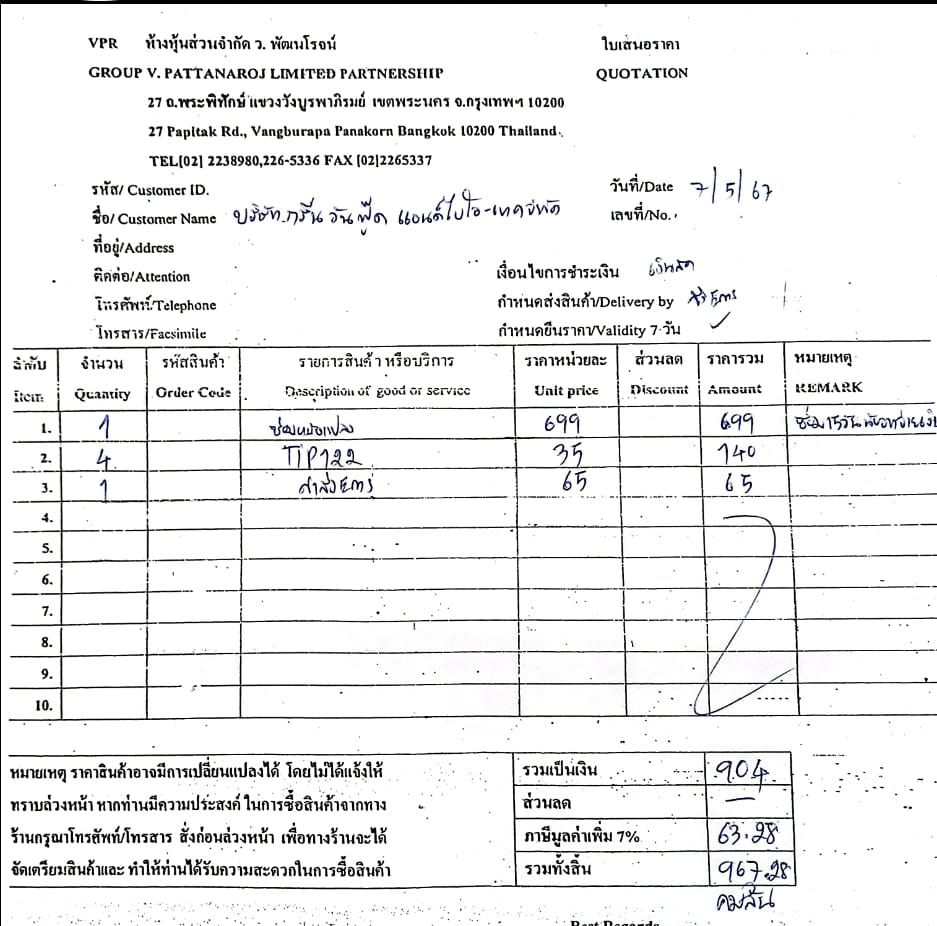 VPR ห้างหุ้นส่วนจำกัด ว. พัฒนโรจน์ ใบเสนอราคา
GROUP V. PATTANAROJ LIMITED PARTNERSHIP QUOTATION
27 ถ.พระพิทักษ์ แขวงวังบูรพาภิรมย์ เขตพระนคร จ.กรุงเทพฯ 10200
27 Papitak Rd., Vangburapa Panakorn Bangkok 10200 Thailand.
TEL[02] 2238980,226-5336 FAX [02]2265337
รหัส/ Customer ID. วันที่/Date 7/5/67
ชื่อ/ Customer Name บริษัท กรีน วัน ฟู๊ด แอนด์ไบโอ-เทค จำกัด เลขที่/No.
ที่อยู่/Address
ติดต่อ/Attention เงื่อนไขการชำระเงิน เงินสด
โทรศัพท์/Telephone กำหนดส่งสินค้า/Delivery by ส่ง EMS
โทรสาร/Facsimile กำหนดยืนราคา/Validity 7 วัน ✓
ลำดับ จำนวน รหัสสินค้า รายการสินค้า หรือบริการ ราคาหน่วยละ ส่วนลด ราคารวม หมายเหตุ
Item Quantity Order Code Description of good or service Unit price Discount Amount REMARK
1. 1 ซ่อมหม้อแปลง 699 699 ซ่อม 15 วัน
2. 4 TIP122 35 140
3. 1 ค่าส่ง EMS 65 65
4.
5.
6.
7.
8.
9.
10.
หมายเหตุ ราคาสินค้าอาจมีการเปลี่ยนแปลงได้ โดยไม่ได้แจ้งให้ รวมเป็นเงิน 904
ทราบล่วงหน้า หากท่านมีความประสงค์ ในการซื้อสินค้าจากทาง ส่วนลด —
ร้านกรุณาโทรศัพท์/โทรสาร สั่งก่อนล่วงหน้า เพื่อทางร้านจะได้ ภาษีมูลค่าเพิ่ม 7% 63.28
จัดเตรียมสินค้าและ ทำให้ท่านได้รับความสะดวกในการซื้อสินค้า รวมทั้งสิ้น 967.28
คมสัน
Best Regards